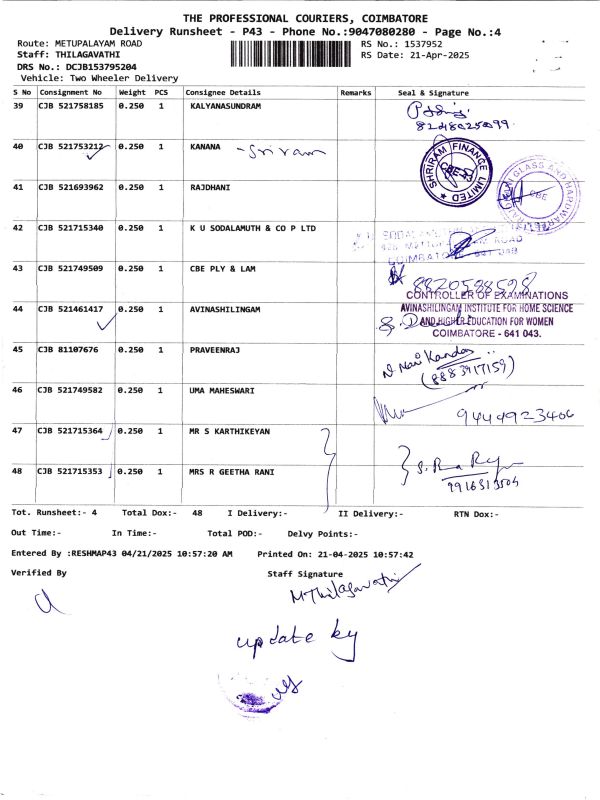 THE PROFESSIONAL COURIERS, COIMBATORE
Delivery Runsheet - P43 - Phone No.:9047080280 - Page No.:4
Route: METUPALAYAM ROAD RS No.: 1537952
Staff: THILAGAVATHI RS Date: 21-Apr-2025
DRS No.: DCJB153795204
Vehicle: Two Wheeler Delivery
S No Consignment No Weight PCS Consignee Details Remarks Seal & Signature
39 CJB 521758185 0.250 1 KALYANASUNDRAM
8248025099
40 CJB 521753212 0.250 1 KANANA - Sriram
SHRIRAM FINANCE LIMITED
CBE-43
41 CJB 521693962 0.250 1 RAJDHANI
GLASS AND HARDWARE
CBE
42 CJB 521715340 0.250 1 K U SODALAMUTH & CO P LTD
ROAD
COIMBATO
43 CJB 521749509 0.250 1 CBE PLY & LAM
8820598598
CONTROLLER OF EXAMINATIONS
44 CJB 521461417 0.250 1 AVINASHILINGAM
AVINASHILINGAM INSTITUTE FOR HOME SCIENCE
AND HIGHER EDUCATION FOR WOMEN
COIMBATORE - 641 043.
45 CJB 81107676 0.250 1 PRAVEENRAJ
(8883917159)
46 CJB 521749582 0.250 1 UMA MAHESWARI
9444923406
47 CJB 521715364 0.250 1 MR S KARTHIKEYAN
48 CJB 521715353 0.250 1 MRS R GEETHA RANI
Tot. Runsheet:- 4 Total Dox:- 48 I Delivery:- II Delivery:- RTN Dox:-
Out Time:- In Time:- Total POD:- Delvy Points:-
Entered By :RESHMAP43 04/21/2025 10:57:20 AM Printed On: 21-04-2025 10:57:42
Verified By Staff Signature
M Thilagavathi
update by